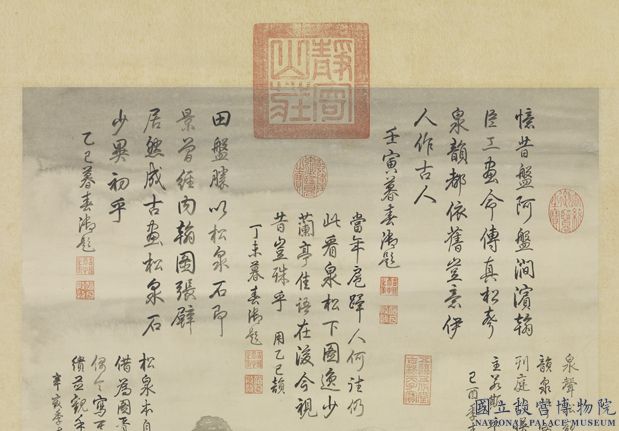 靜寄山莊
憶昔盤阿盤澗濱翰
臣工畫令傳真松聲
泉韻都依舊豈意伊
人作古人
壬寅暮春御題
當年扈蹕人何往仍
此看泉松下圖逸少
蘭亭佳語在後今視
昔豈殊乎 用乙巳韻
丁未暮春御題
田盤勝以松泉石即
景曾經內翰圖張壁
居然成古畫松泉石
少異初乎
乙巳暮春御題
泉聲
韻泉
刊庭
主
己酉季
松泉本自
借為圖景
辛亥季
國立故宮博物院
NATIONAL PALACE MUSEUM